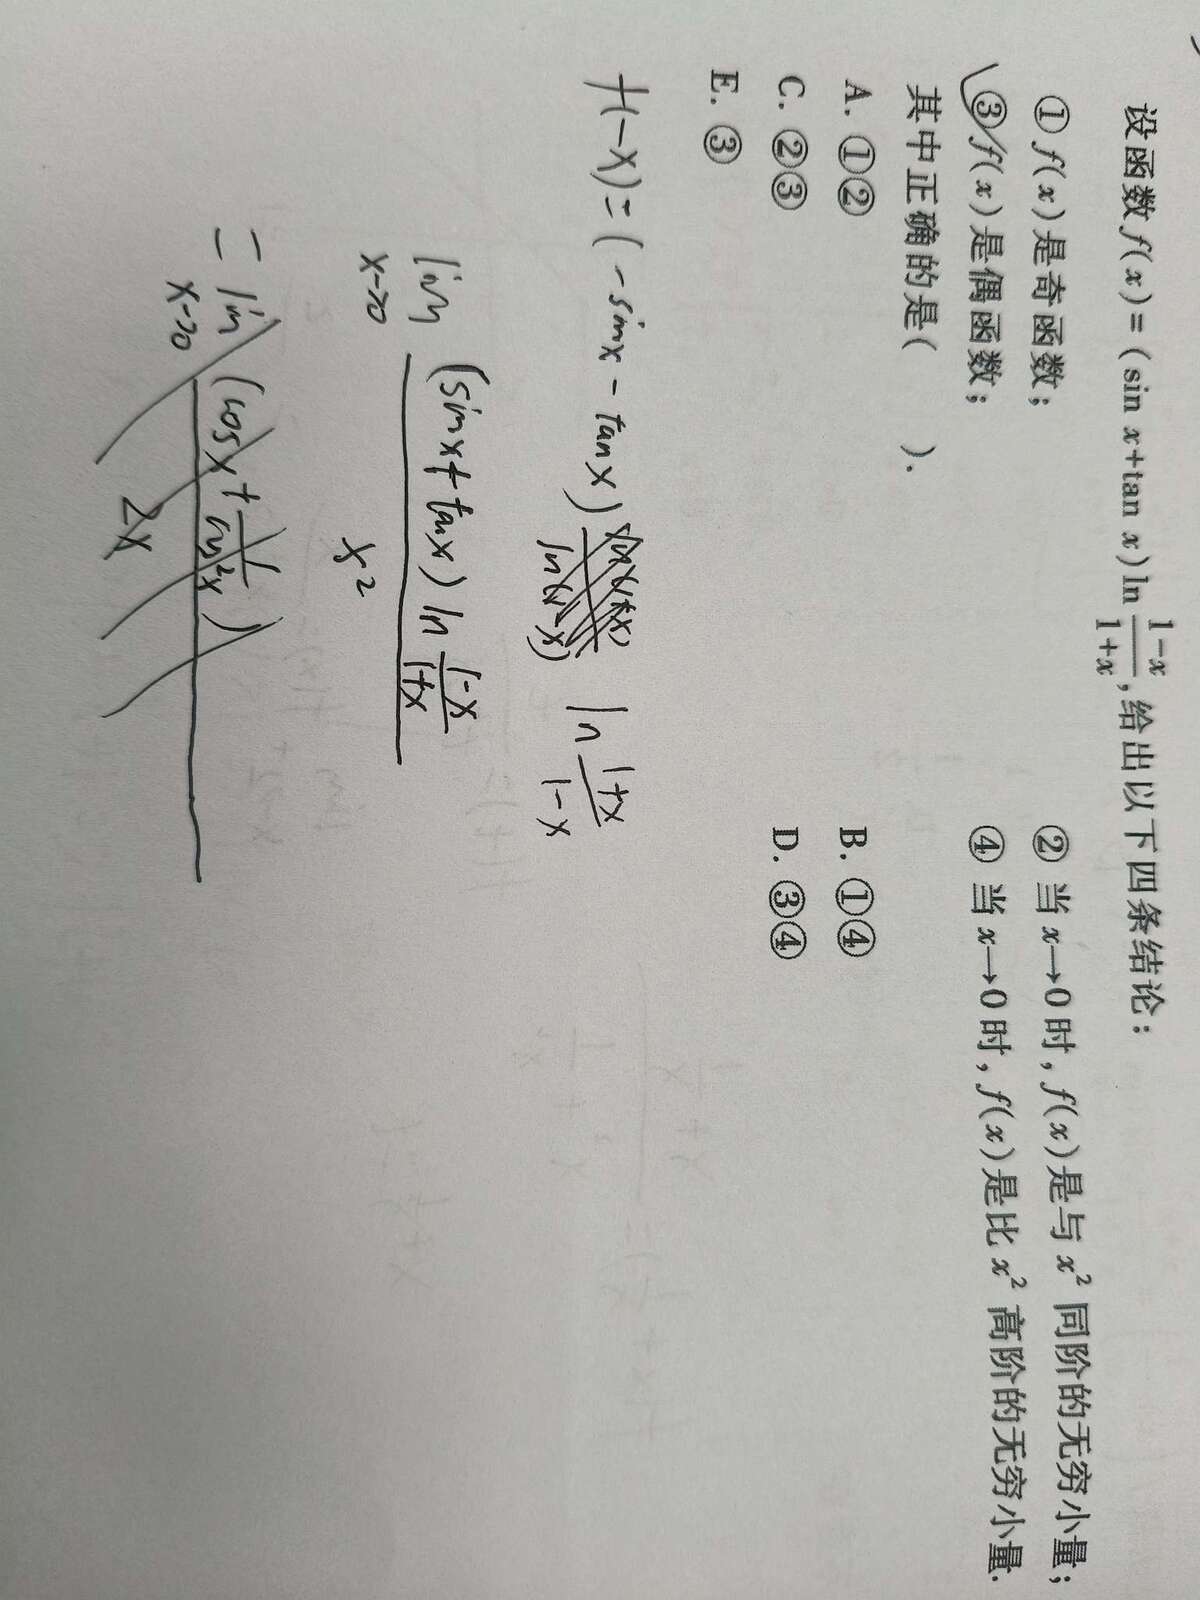 设函数f(x)=(sin x+tan x)ln (1-x)/(1+x),给出以下四条结论:
① f(x)是奇函数; ② 当x→0时,f(x)是与x²同阶的无穷小量;
③ f(x)是偶函数; ④ 当x→0时,f(x)是比x²高阶的无穷小量.
其中正确的是( ).
A. ①② B. ①④
C. ②③ D. ③④
E. ③
f(-x)=(-sinx-tanx) ln (1+x)/(1-x)
lim x→0 (sinx+tanx) ln (1-x)/(1+x) / x²
= lim x→0 (cosx+1/cos²x) / 2x